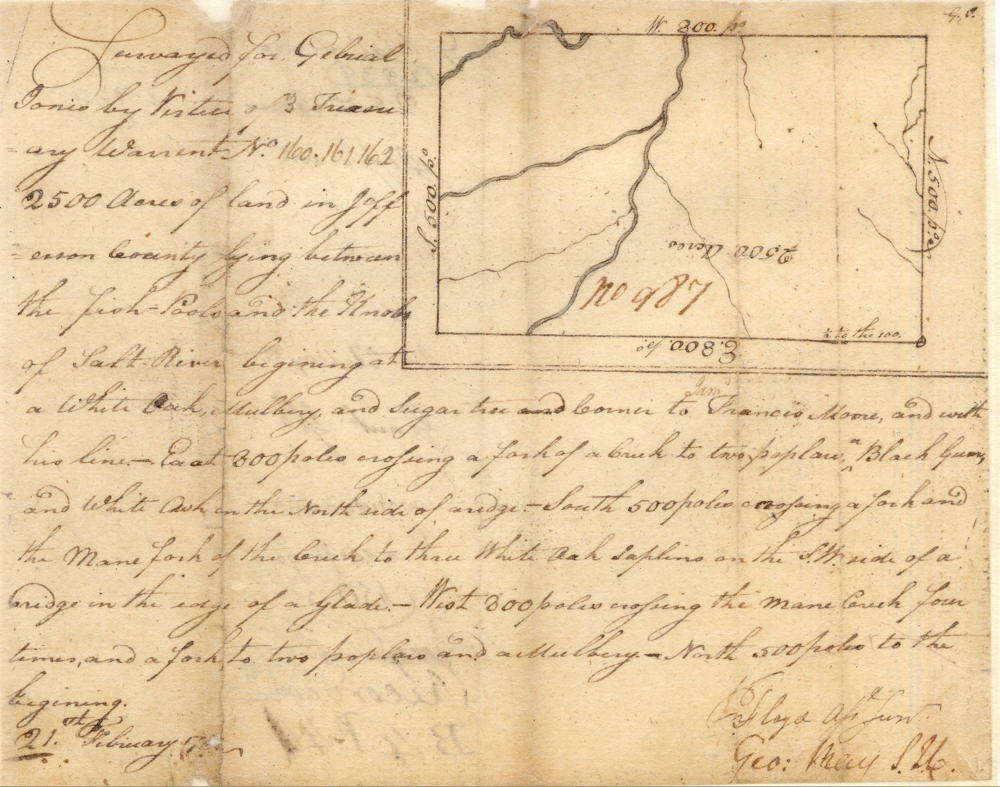 Surveyed for Gebrial
Jones by Virtue of 3 Treasu-
=ery Warrent No. 160.161.162
2500 Acres of land in Jeff
=erson County lying between
the fish-Pools and the Knobs
of Salt-River begining at
a White Oak, Mulbery, and Sugar tree and Corner to Francis Moore, and with
his line - East 800 poles crossing a fork of a Creek to two poplars, a Black Gum,
and White Ash on the North side of a ridge - South 500 poles crossing a fork and
the Mane fork of the Creek to three White Oak Saplins on the S.W. side of a
ridge in the edge of a Glade. - West 800 poles crossing the Mane Creek four
times, and a fork, to two poplars and a Mulbery - North 500 poles to the
begining.
21.st February
Floyd Asst. Surv.
Geo: May S.
W. 800. po.
S. 500. po.
N. 500. po.
2500 Acres
no 987
E. 800. po.
to the 100.